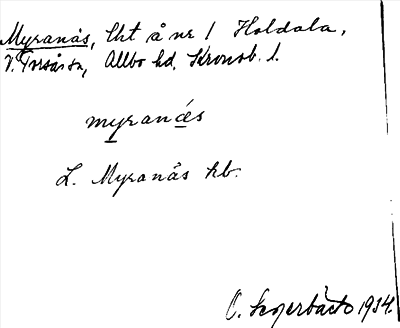 Myranäs, lht å nr 1 Haldala,
V. Torsås sn, Allbo hd, Kronob. l.
myranǽs
L. Myranäs hb.
O. 1934.